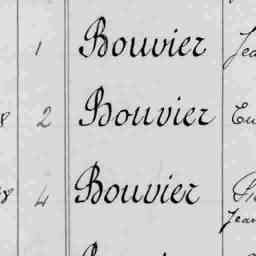 1 Bouvier
8 2 Bouvier
8 4 Bouvier
Jean